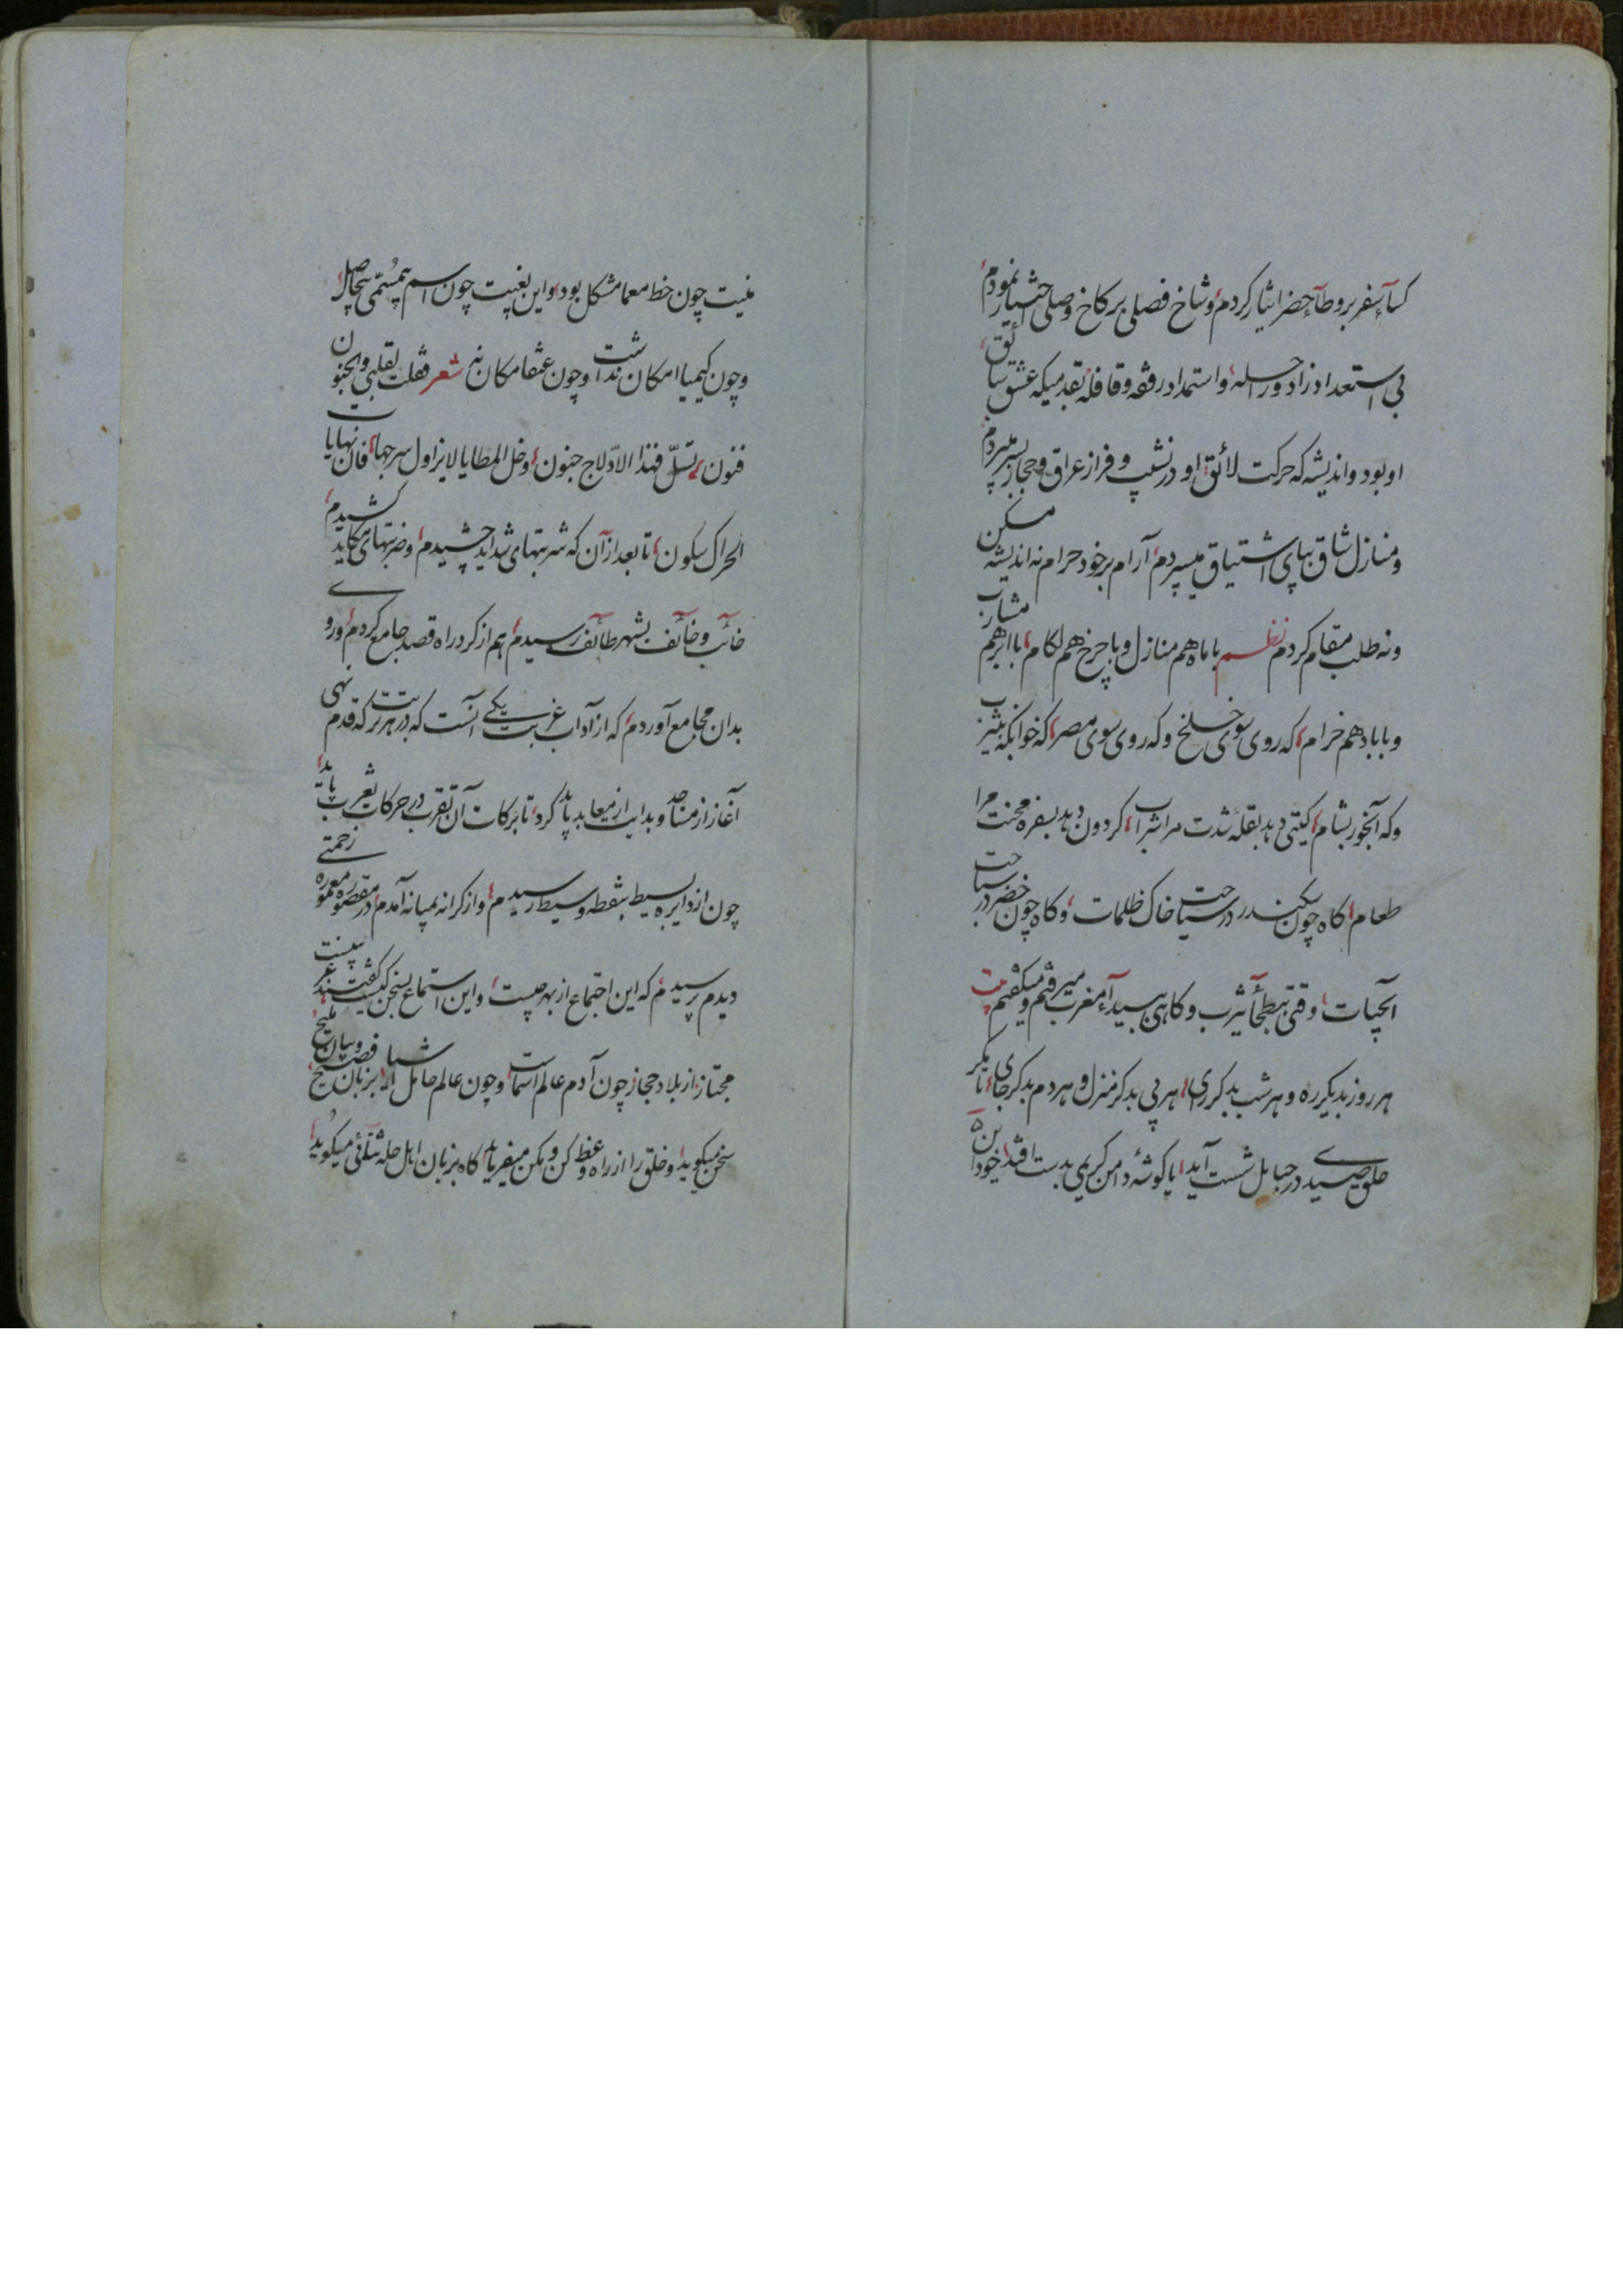 کسآء سفر بر وطآء حضر ایثار کردم، و شاخ فصلی بر کاخ وصلی اختیار نمودم،
بی استعداد زاد و راحله، و استمداد رفقه و قافله بقدمیکه عشق سائق
او بود و اندیشه که حرکت لائق او در نشیب و فراز عراق و حجاز بسر میبردم
و منازل شاق بپای اشتیاق میسپردم، آرام بر خود حرام نه اندیشه مسکن
و نه طلب مقام کردم نظم با ماه هم منازل و با چرخ هم لکام، با ابر هم مشارب
و با باد هم خرام، که روی سوی خلخ و که روی سوی مصر، که خوابکه بیثرب
و که آبخور بشام، کیتی دهد بقلهٔ شدت مرا شراب، کردون دهد بسفره محنت مرا
طعام، کاه چون سکندر در سیاحت خاک ظلمات، و کاه چون خضر در سباحت
آبحیات، وقتی ببطحآء یثرب و کاهی ببیدآء مغرب میرفتم و میکفتم بیت
هر روز بدیکر ره و هر شب بدکر رای، هر پی بدکر منزل و هر دم بدکر جای، تا مکر
حلق صیدی در حبایل شست آید، یا کوشهٔ دامن کریمی بدست افتد، خود این
منیت چون خط معما مشکل بود، و این بغیت چون اسم بیمسمی بیحاصل،
و چون کیمیا امکان نداشت و چون عنقا مکان نه شعر فقلت لقلبی والجنون
فنون، تسلّ فهذا الادّلاج جنون، و خل المطایا لا یزاول سرجها، فان نهایات
الحراک سکون، تا بعد از آن که شربتهای شداید چشیدم، و ضربتهای مکاید کشیدم،
خائب و خائف بشهر طائف رسیدم، هم از کرد راه قصد جامع کردم، و روی
بدان مجامع آوردم، که از آداب غربت یکی آنست که در هر تربت که قدم نهی
آغاز از مساجد و بدایت از معابد باید کرد، تا برکات آن تقرب در حرکات تغرب پاید،
چون از دایره بسیط بنقطه وسیط رسیدم، و از کرانه بمیانه آمدم، در مقصوره معموره زحمتی
دیدم پرسیدم، که این اجتماع از بهر چیست، و این استماع سخن کیست، کفتند غریبیست
مجتاز از بلاد حجاز چون آدم عالم اسماست، و چون عالم حامل اشیا، بزبان فصیح و بیان ملیح
سخن میکوید، و خلق را از راه وعظ کن و مکن میفرماید، کاه بزبان اهل حله ثنائی میکوید،